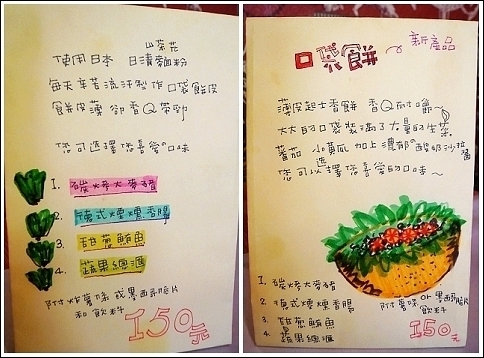 山茶花
使用日本 日清麵粉
每天辛苦流汗製作 口袋餅皮
餅皮薄 卻香Q帶勁
您可選擇您喜愛的口味
1. 碳烤大麥豬
2. 德式煙燻香腸
3. 甜蔥鮪魚
4. 蔬果總滙
附炸薯條 或墨西哥脆片
和飲料
150元
新產品
口袋餅
薄皮起士香餅 香Q耐嚼~
大大的口袋裝滿了大量的生菜
番茄 小黃瓜 加上濃郁的酸奶沙拉醬
您可以選擇您喜愛的口味~
1. 碳烤大麥豬
2. 德式煙燻香腸
3. 甜蔥鮪魚
4. 蔬果總滙
附薯條 or 墨西哥脆片
飲料
150元